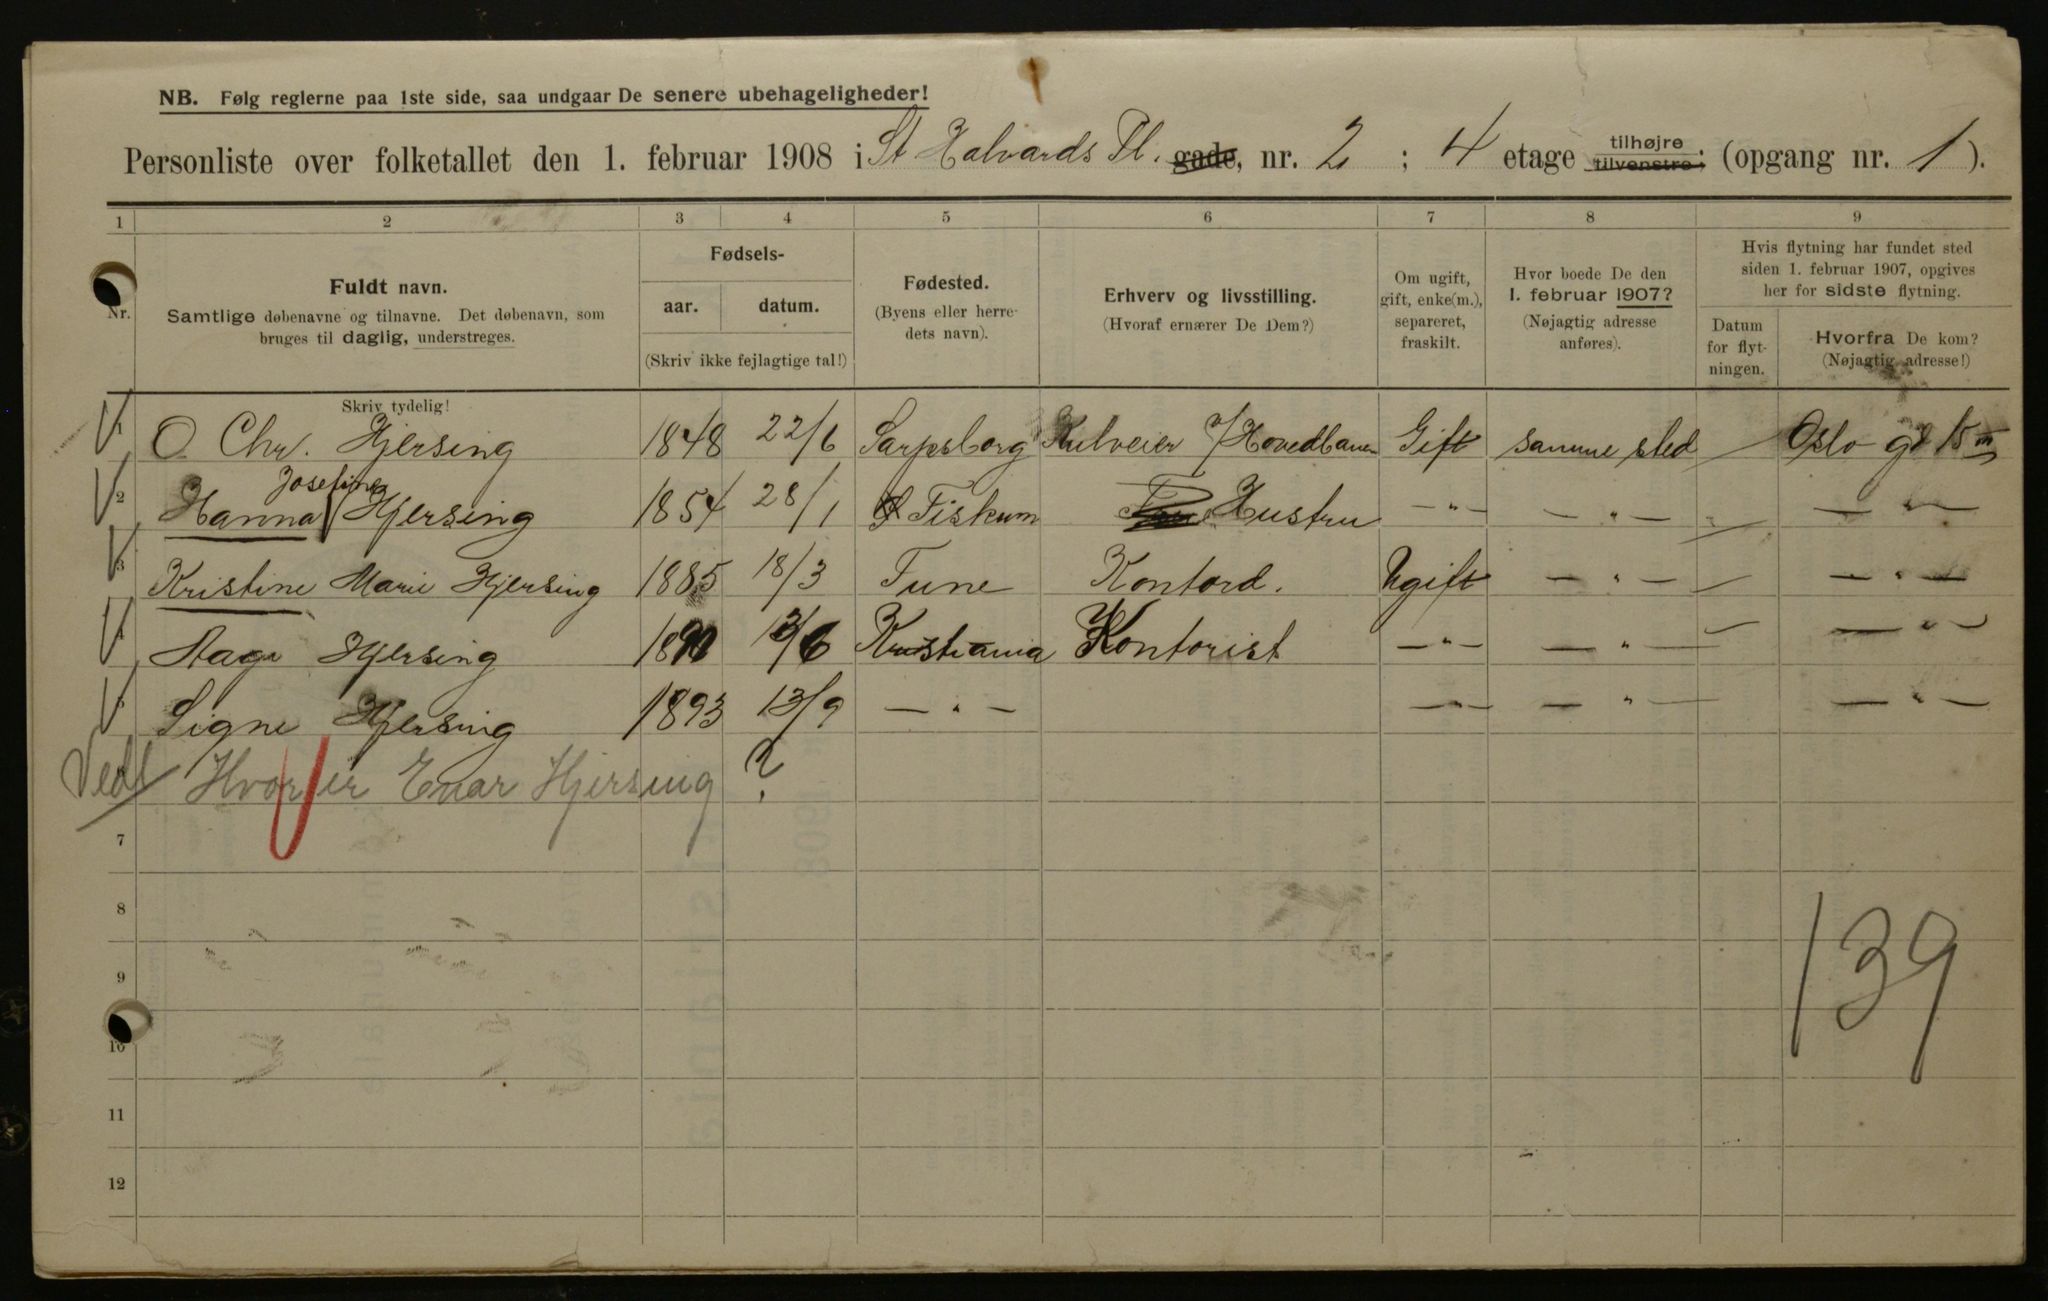 NB. Følg reglerne paa 1ste side, saa undgaar De senere ubehageligheder!
Personliste over folketallet den 1. februar 1908 i St Halvards Pl. gade, nr. 2 ; 4 etage tilhøjre tilvenstre; (opgang nr. 1 ).
1 2 3 4 5 6 7 8 9
Nr.
Fuldt navn.
Samtlige døbenavne og tilnavne. Det døbenavn, som
bruges til daglig, understreges.
Skriv tydelig!
Fødsels-
aar. datum.
(Skriv ikke fejlagtige tal!)
Fødested.
(Byens eller herre-
dets navn).
Erhverv og livsstilling.
(Hvoraf ernærer De Dem?)
Om ugift,
gift, enke(m.),
separeret,
fraskilt.
Hvor boede De den
1. februar 1907?
(Nøjagtig adresse
anføres).
Hvis flytning har fundet sted
siden 1. februar 1907, opgives
her for sidste flytning.
Datum
for flyt-
ningen.
Hvorfra De kom?
(Nøjagtig adresse!)
1 O. Chr. Hjersing 1848 22/6 Sarpsborg Kulveier v/Hovedbanen Gift samme sted — Oslo gd 15
Josefine
2 Hanna Hjersing 1854 28/1 Fiskum Hustru —"— —"— —"—
3 Kristine Marie Hjersing 1885 18/3 Tune Kontord. Ugift —"— — —"—
4 Aage Hjersing /6 Kristiania Kontorist —"— —"— — —"—
5 Signe Hjersing 1893 13/9 —"— —"— —"— —"—
Vedl Hvor er Enar Hjersing ?
7
8
139
9
10
11
12